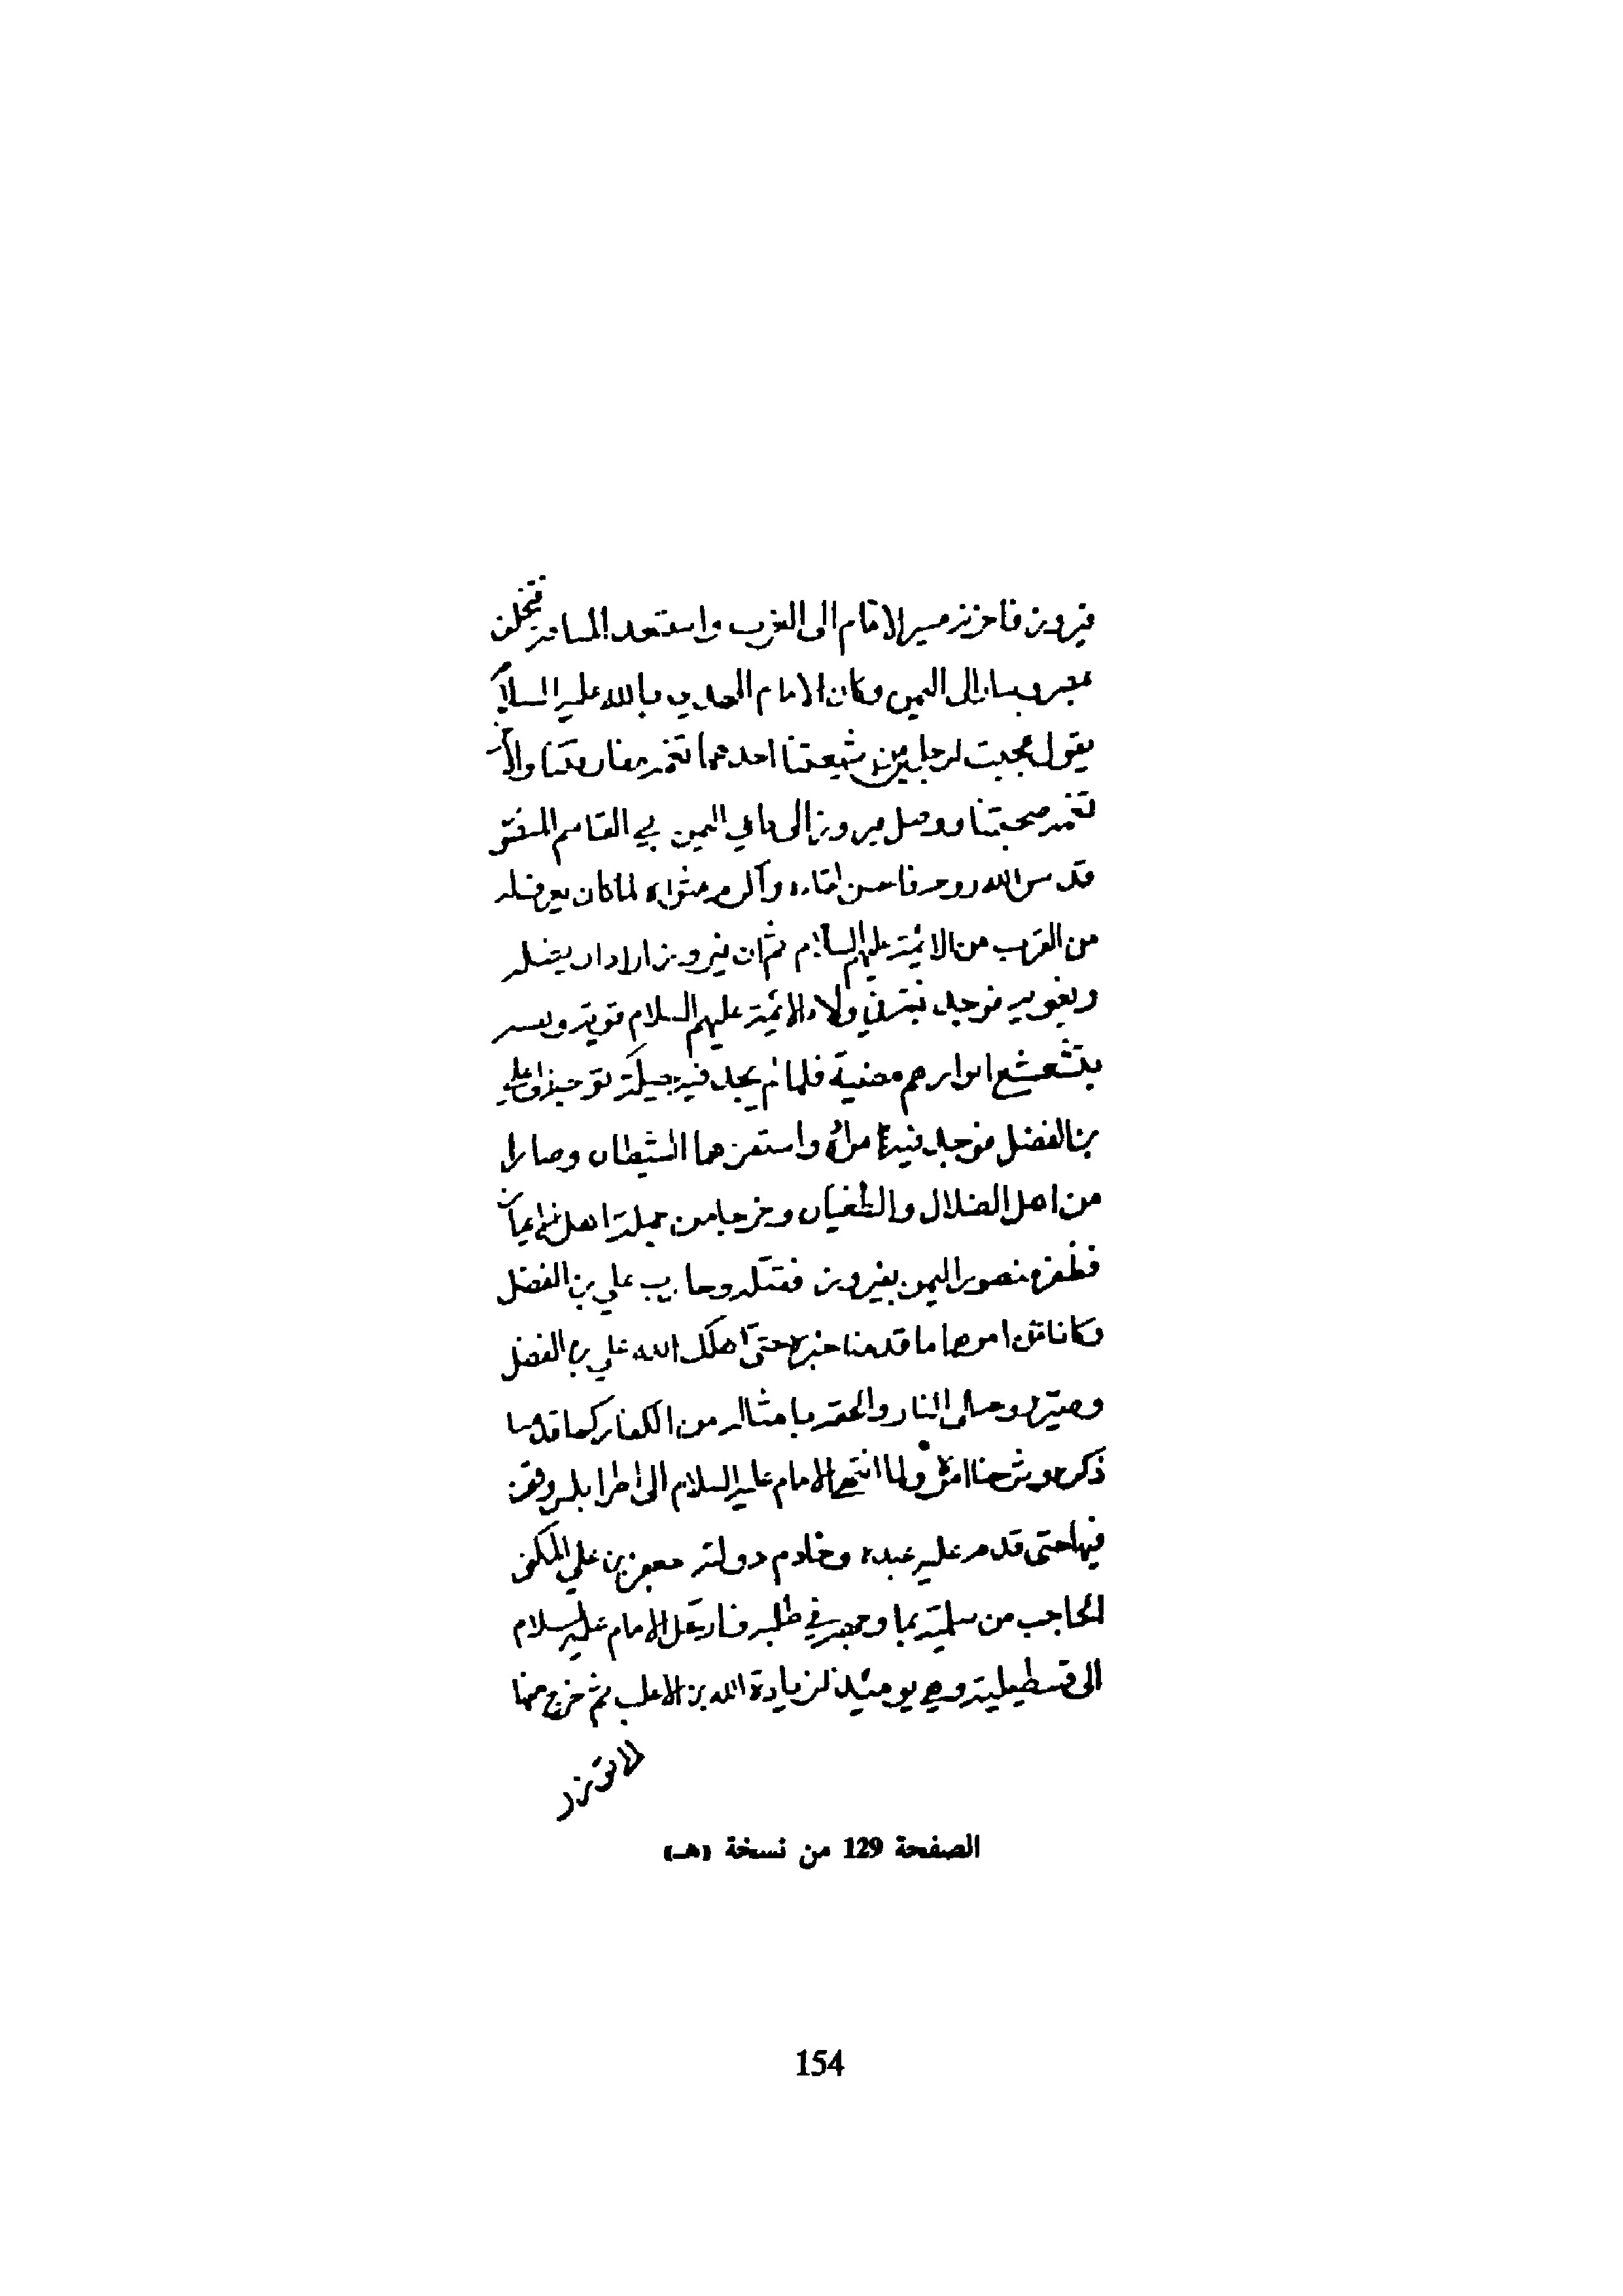 فيروز فاحزنه مسير الامام الى الغرب واستبعد المسافة فتخلف
بمصر وسار الى اليمن وكان الامام المهدي بالله عليه السلام
يقول عجبت لرجلين من شيعتنا احدهما تغمه مفارقتنا والآخر
تغمه صحبتنا ووصل فيروز الى داعي اليمن ابي القاسم المنصور
قدس الله روحه فاحسن لقاءه وأكرم مثواه لما كان يعرف له
من القرب من الائمة عليهم السلام ثم ان فيروز اراد ان يضله
ويغويه فوجد نيته في ولاء الائمة عليهم السلام قوية
بتشعشع انوارهم مضيئة فلما لم يجد فيه حيلة توجه علي
بن الفضل فوجد فيه ما واستفزهما الشيطان وصارا
من اهل الضلال والطغيان وخرجا من جملة اهل الايمان
فظفر منصور اليمن بفيروز فقتله وحارب علي بن الفضل
وكانا من امرهما ما قدمنا خبره حتى اهلك الله علي بن الفضل
وصير روحه الى النار والحقه بامثاله من الكفار كما قدمنا
ذكره وشرحنا امره ولما انتهى الامام عليه السلام الى اطرابلس وقف
فيها حتى قدم عليه عبده وخادم دولته جعفر بن علي المكنى
الحاجب من سلمية بما وجهه في طلبه فارتحل الامام عليه السلام
الى قسطيلية وهي يومئذ لزيادة الله بن الاغلب ثم خرج منها
لا توزر
الصفحة 129 من نسخة (هـ)
154